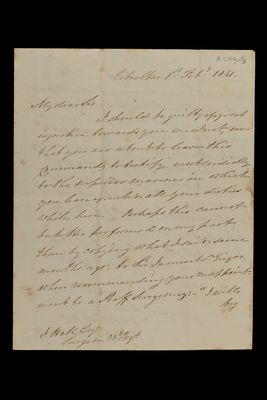 Gibraltar 1st Feby 1841.
My dear Sir
I should be guilty of great
injustice towards you were I not, now
that you are about to leave this
Command, to testify most cordially
to the superior manner in which
you have executed all your duties
while here. Perhaps this cannot
be better performed on my part
than by copying what I said, some
months ago, to Sir James McGrigor
when recommending your reappoint-
ment to a Staff Surgeoncy:- "I will
say
J. Hall, Esqr
Surgeon 33d Regt